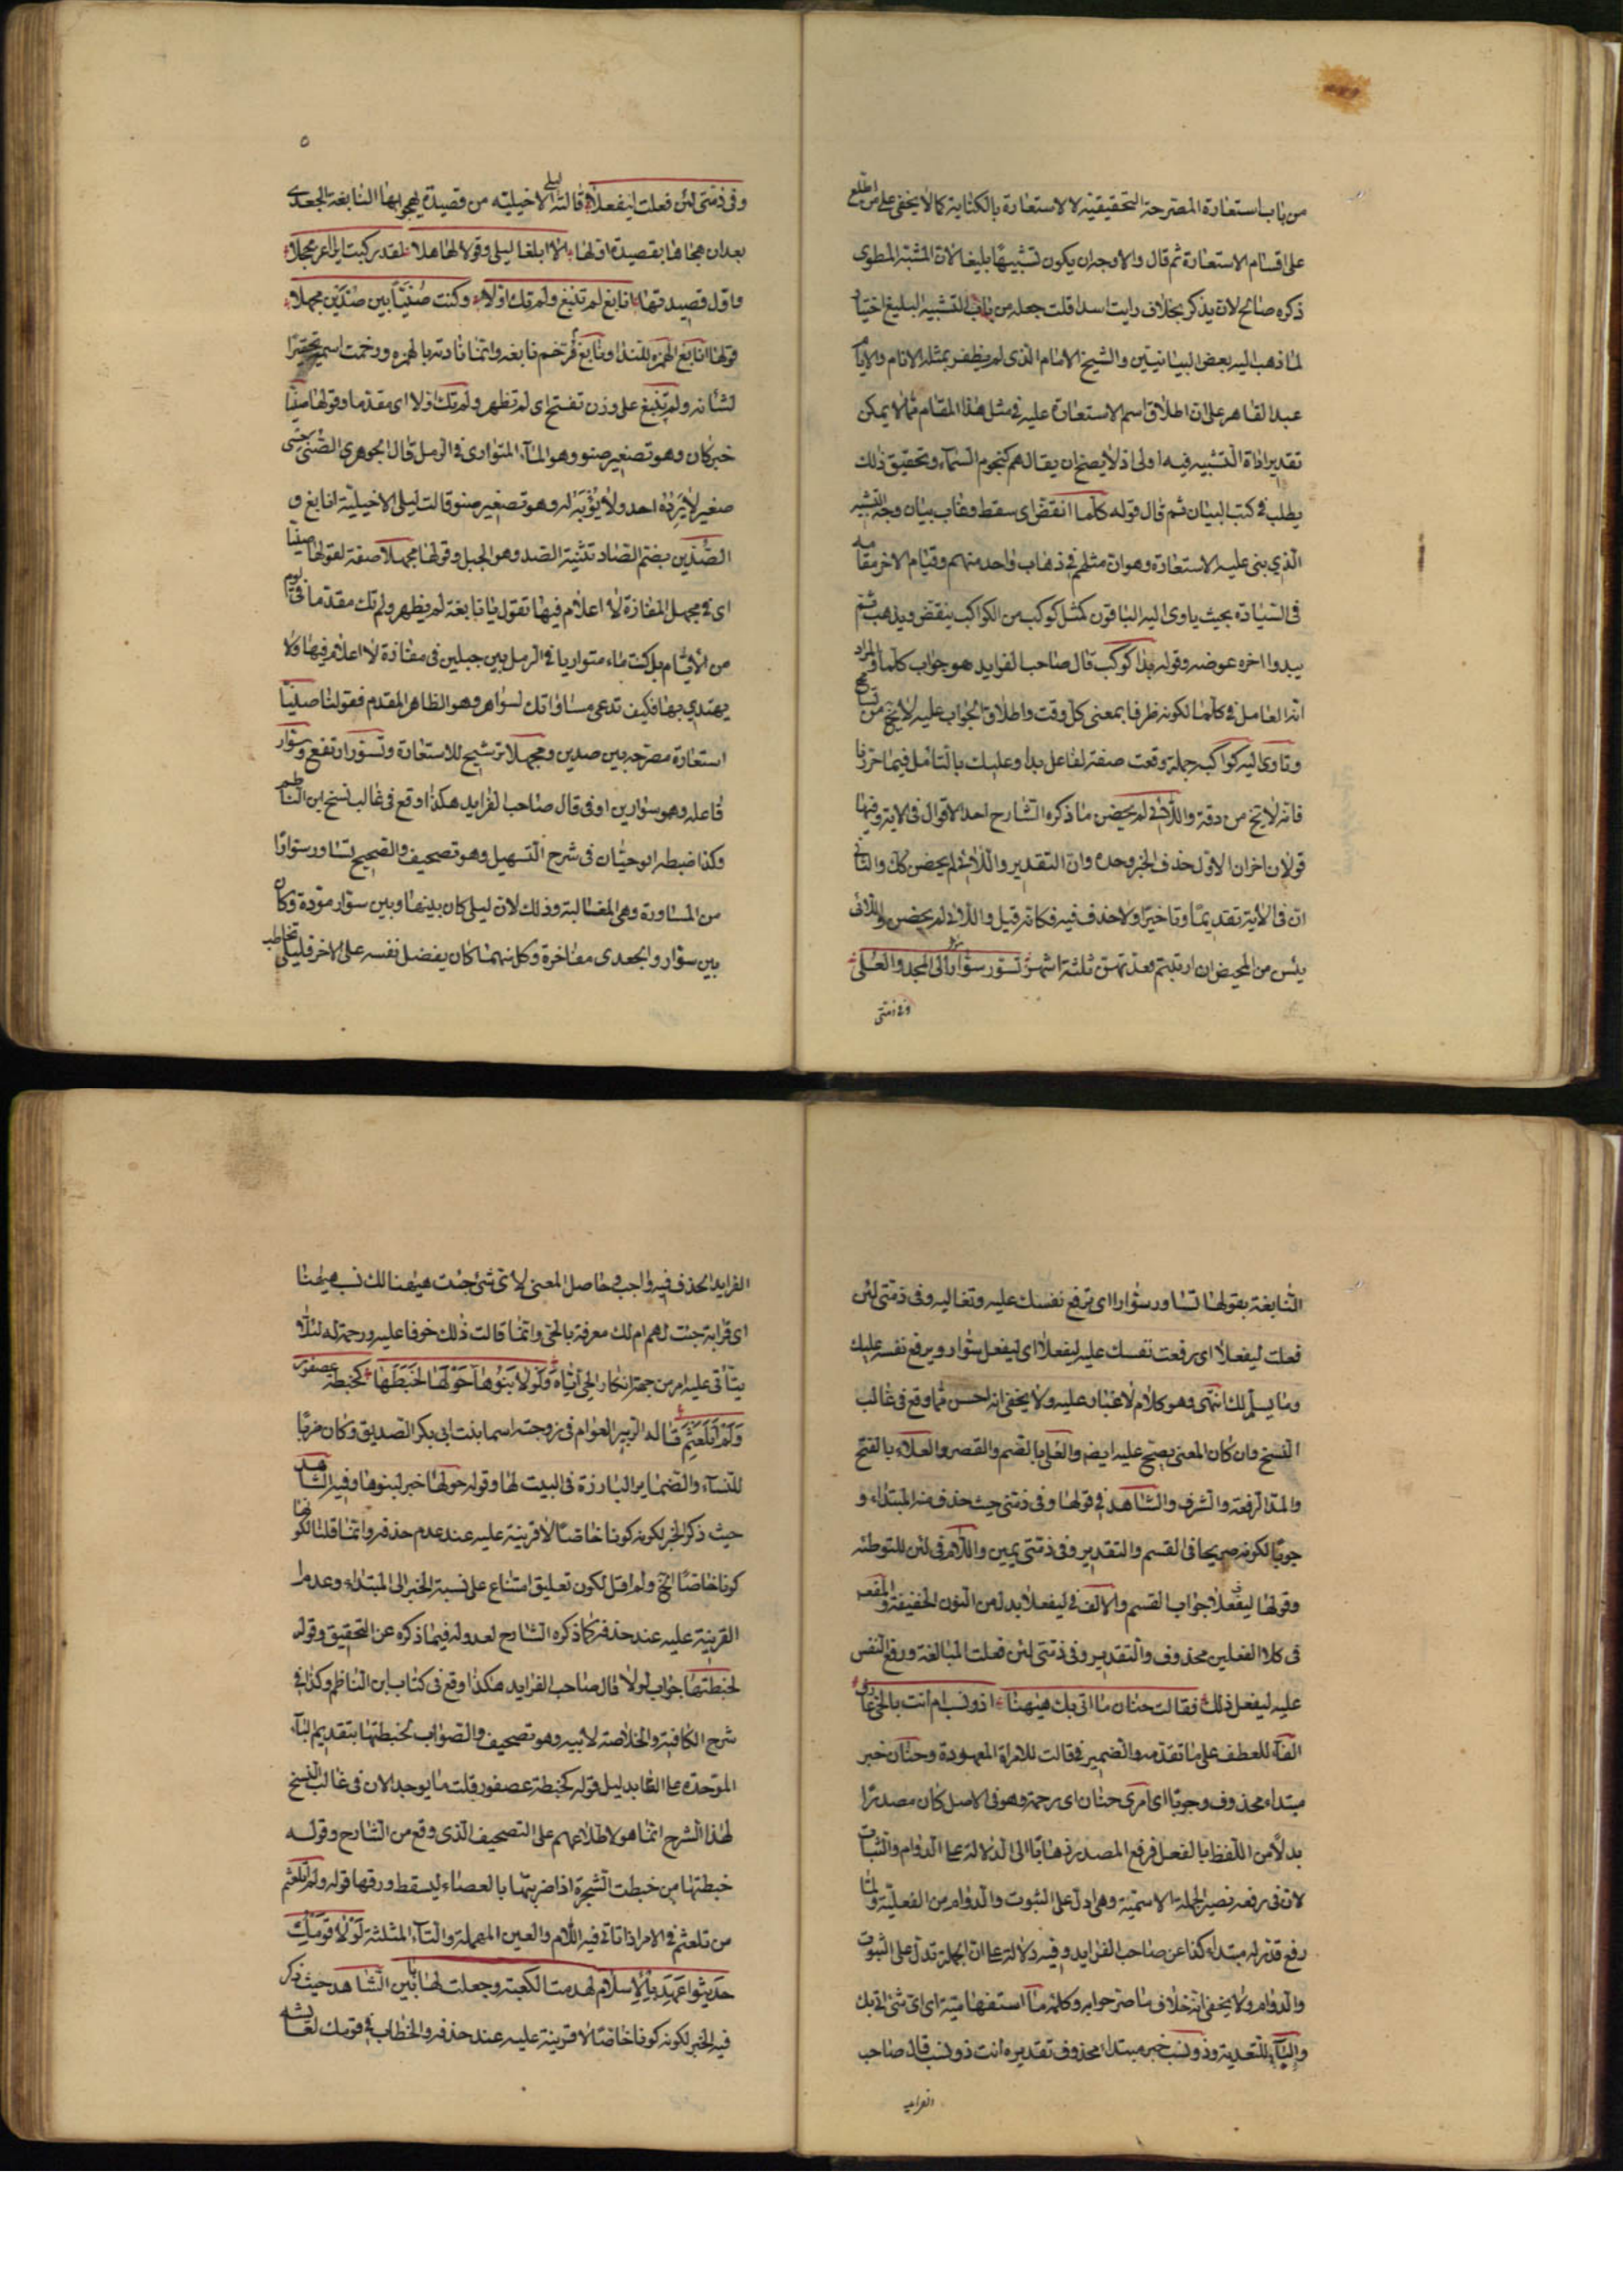 من باب استعارة المصرحة التحقيقية لا الاستعارة بالكناية كما لا يخفى على من اطلع
على اقسام الاستعارة ثم قال والاوجه ان يكون تشبيها بليغا لان المشبه المطوى
ذكره صالح لان يذكر بخلاف رايت اسدا قلت جعله من باب التشبيه البليغ اختيار
لما ذهب اليه بعض البيانيين والشيخ الامام الذى لم يظفر بمثله الانام والايام
عبد القاهر على ان اطلاق اسم الاستعارة عليه في مثل هذا المقام مما لا يمكن
تقدير اداة التشبيه فيه اولى اذ لا يصح ان يقال هم كنجوم السماء وتحقيق ذلك
يطلب في كتب البيان ثم قال قوله كلما انقض اى سقط وغاب بيان وجه التشبيه
الذي بنى عليه الاستعارة وهو ان مثلهم في ذهاب واحد منهم وقيام الاخر مقامه
فى السيادة بحيث ياوى اليه الباقون كمثل كوكب من الكواكب ينقض ويذهب ثم
يبدو اخره عوضه وقوله بدا كوكب قال صاحب الفرايد هو جواب كلما والمراد
انه العامل في كلما لكونه ظرفا بمعنى كل وقت واطلاق الجواب عليه لا يخ من تسامح
وتاوى اليه كواكبه جملة وقعت صفة لفاعل بدا وعليك بالتامل فيما حررنا
فانه لا يخ من دقة واللائى لم يحضن ما ذكره الشارح احد الاقوال فى الاية وفيها
قولان اخران الاول حذف الخبر وحده وان التقدير واللائى لم يحضن كك والثانى
ان فى الاية تقديما وتاخيرا ولا حذف فيه فكانه قيل واللائى لم يحضن واللائى
يئس من المحيض ان ارتبتم فعدتهن ثلثة اشهر تسور سوارا الى المجد والعلى
وفى ذمتى
٥
وفى ذمتى لئن فعلت ليفعلا قالته ليلى الاخيليه من قصيدة تهجو بها النابغة الجعدى
بعد ان هجاها بقصيدة اولها الا ابلغا ليلى وقولا لها هلا لقد ركبت ايرا اغر محجلا
واول قصيدتها انابغ لم تنبغ ولم تك اولا وكنت صنيا بين صدين مجهلا
قولها انابغ الهمزه للندا ونابغ مرخم نابغه وانما نادته بالهمزه ورخمت اسمه تحقيرا
لشانه ولم تنبغ على وزن تفتح اى لم تظهر ولم تك اولا اى مقدما وقولها صنيا
خبر كان وهو تصغير صنو وهو الماء المتوارى فى الرمل قال الجوهرى الصنى حسى
صغير لا يرده احد ولا يؤبه له وهو تصغير صنو قالت ليلى الاخيلية انابغ و
الصدين بضم الصاد تثنية الصد وهو الجبل وقولها مجهلا صفة لقولها صنيا
اى في مجهل المفازة لا اعلام فيها تقول يا نابغة لم يظهر ولم تك مقدما فى قوم
من الاقيام بل كنت ماء متواريا فى الرمل بين جبلين فى مفازة لا اعلام فيها ولا
يهتدي بها فكيف تدعى مساواتك لسوار وهو الظاهر المقدم فقولنا صنيا
استعارة مصرحه بين صدين ومجهلا ترشيح للاستعارة وتسور ارتفع وسوار
فاعله وهو سوار بن اوفى قال صاحب الفرايد هكذا وقع فى غالب نسخ ابن الناظم
وكذا ضبطه ابو حيان فى شرح التسهيل وهو تصحيف والصحيح تساور سوارا
من المساورة وهى المغالبة وذلك لان ليلى كان بينها وبين سوار مودة وكان
بين سوار والجعدى مفاخرة وكل منهما كان يفضل نفسه على الاخر فليلى تخاطب
النابغة بقولها تساور سوارا اى ترفع نفسك عليه وتغاليه وفى ذمتى لئن
فعلت ليفعلا اى رفعت نفسك عليه ليفعلا اى ليفعل سوار ويرفع نفسه عليك
وما يسلم لك انتهى وهو كلام لا غبار عليه ولا يخفى انه احسن مما وقع فى غالب
النسخ وان كان المعنى يصح عليه ايضا والعلى بالضم والقصر والعلاء بالفتح
والمد الرفعة والشرف والشاهد في قولها وفى ذمتى حيث حذف منه المبتداء و
جوبا لكونه صريحا فى القسم والتقدير وفى ذمتى يمين واللام فى لئن للتوطئه
وقولها ليفعلا جواب القسم والالف في ليفعلا بدل من النون الخفيفة والمفعول
فى كلا الفعلين محذوف والتقدير وفى ذمتى لئن فعلت المبالغة ورفع النفس
عليه ليفعل ذلك فقالت حنان ما اتى بك هيهنا اذو نسب ام انت بالحى عارف
الفاء للعطف على ما تقدمه والضمير فى قالت للامراة المعهودة وحنان خبر
مبتداء محذوف وجوبا اى امرى حنان اى رحمة وهو فى الاصل كان مصدرا
بدلا من اللفظ بالفعل فرفع المصدر ذهابا الى الدلالة على الدوام والثبات
لان فى رفعه تصير الجملة الاسمية وهى ادل على الثبوت والدوام من الفعلية ولما
رفع قدر له مبتداء كذا عن صاحب الفرايد وفيه دلالة على ان الجملة تدل على الثبوت
والدوام ولا يخفى انه خلاف ما صرحوا به وكلمة ما استفهامية اى اى شئ اتى بك
والباء للتعدية وذو نسب خبر مبتداء محذوف تقديره انت ذو نسب قال صاحب
الفرايد
الفرايد الحذف فيه واجب وحاصل المعنى لاى شئ جئت هيهنا الك نسب هيهنا
اى قرابة جئت لهم ام لك معرفة بالحى وانما قالت ذلك خوفا عليه ورحمة له لئلا
يتأتى عليه امر من جهة انكار الحى اياه ولولا بنوها حولها لخبطتها كخبطة عصفور
ولم اتلعثم قاله الزبير العوام فى زوجته اسما بنت ابى بكر الصديق وكان ضربا
للنساء والضماير البارزة فى البيت لها وقوله حولها خبر لبنوها وفيه الشاهد
حيث ذكر الخبر لكونه كونا خاصا لا قرينة عليه عند عدم حذفه وانما قلت لكونها
كونا خاصا الخ ولم اقل لكون تعليق امتناع على نسبة الخبر الى المبتداء وعدم
القرينة عليه عند حذفه كما ذكره الشارح لعدوله فيما ذكره عن التحقيق وقوله
لخبطتها جواب لولا قال صاحب الفرايد هكذا وقع فى كتاب ابن الناظم وكذا في
شرح الكافية والخلاصة لابيه وهو تصحيف والصواب لخبطتها بتقديم الباء
الموحدة على الطا بدليل قوله كخبطة عصفور قلت ما يوجد الان فى غالب النسخ
لهذا الشرح انما هو لاطلاعهم على التصحيف الذى وقع من الشارح وقوله
خبطتها من خبطت الشجرة اذا ضربتها بالعصاء ليسقط ورقها قوله ولم اتلعثم
من تلعثم في الامر اذا تانى فيه اللام والعين المهملة والثاء المثلثة لولا قومك
حديثوا عهد بالاسلام لهدمت الكعبة وجعلت لها بابين الشاهد حيث ذكر
فيه الخبر لكونه كونا خاصا لا قرينة عليه عند حذفه والخطاب في قومك لعائشه